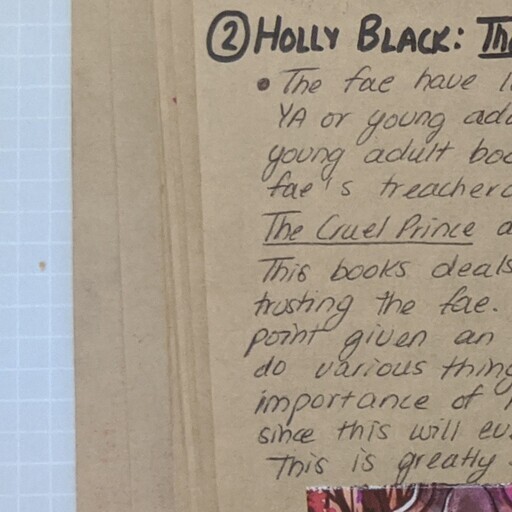 ② HOLLY BLACK: Th
• The fae have l
YA or young adu
young adult boo
fae's treachero
The Cruel Prince a
This books deals
trusting the fae.
point given an
do various thing
importance of
since this will ev
This is greatly